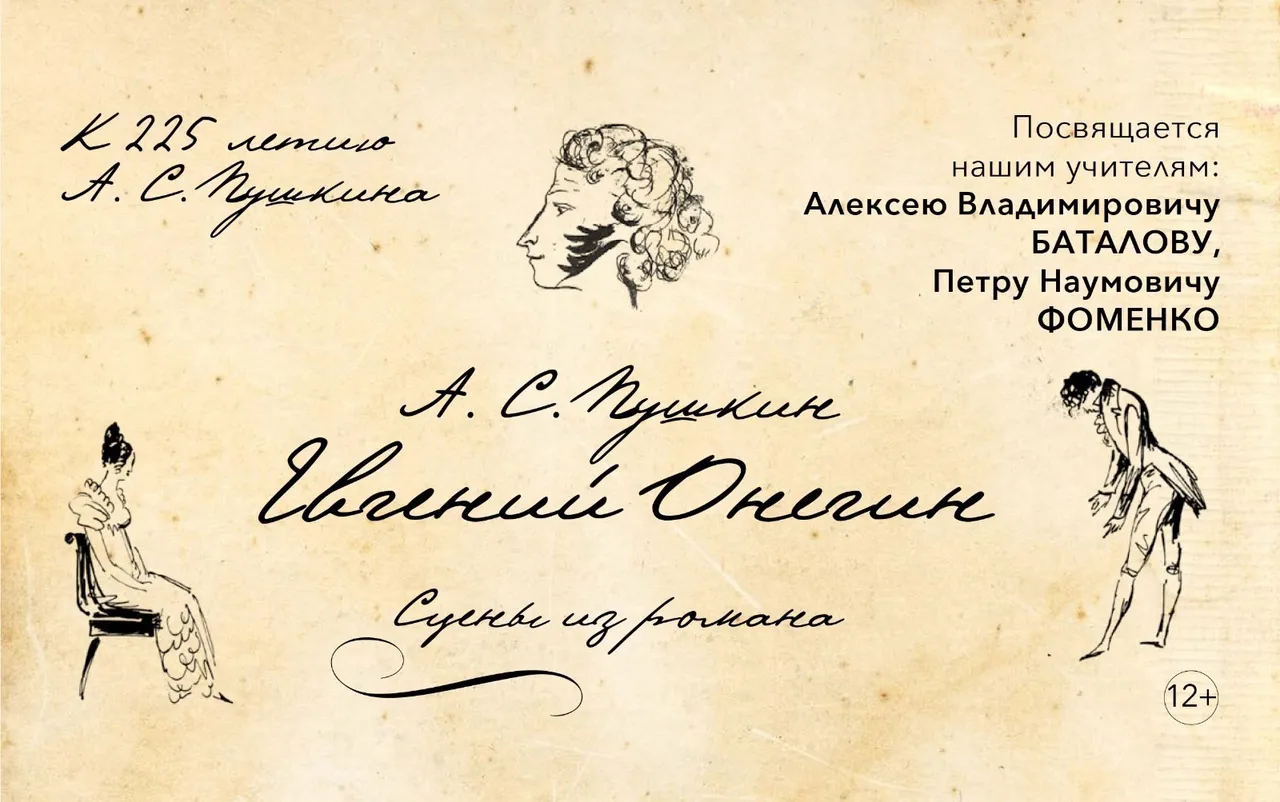 К 225 летию
А. С. Пушкина
Посвящается
нашим учителям:
Алексею Владимировичу
БАТАЛОВУ,
Петру Наумовичу
ФОМЕНКО
А. С. Пушкин
Евгений Онегин
Сцены из романа
12+